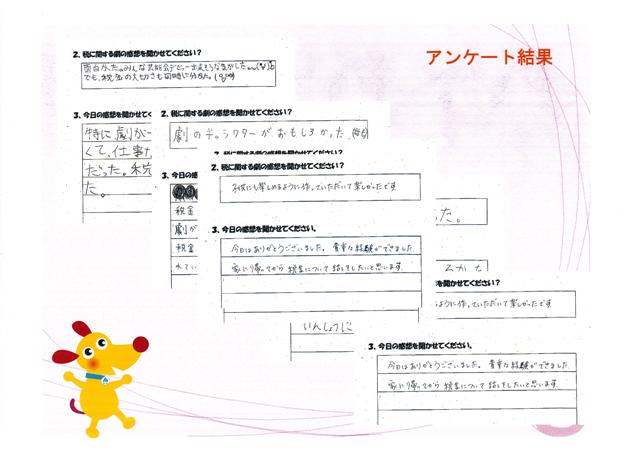 アンケート結果
2. 税に関する劇の感想を聞かせてください?
でも、税金の大切さも同時に分かた。
3. 今日の感想を聞かせてく
特に劇が
くて、仕事
だった。税
た。
2. 税に関する劇の感想を聞かせてください?
劇のキャラクターがおもしろかった
3. 今日の感
税金
劇が
税金
れてい
2. 税に関する劇の感想を聞かせてください?
2. 税に関する劇の感想を聞かせてください?
私にも楽しめるように作っていただいて楽しかったです
3. 今日の感想を聞かせてください。
今日はありがとうございました。貴重な経験ができました
家に帰ってから税金について話をしたいと思います
た。
ろかった
いんしょうに
を聞かせてください?
ように作っていただいて楽しかったです
3. 今日の感想を聞かせてください。
今日はありがとうございました。貴重な経験ができました
家に帰ってから税金について話をしたいと思います